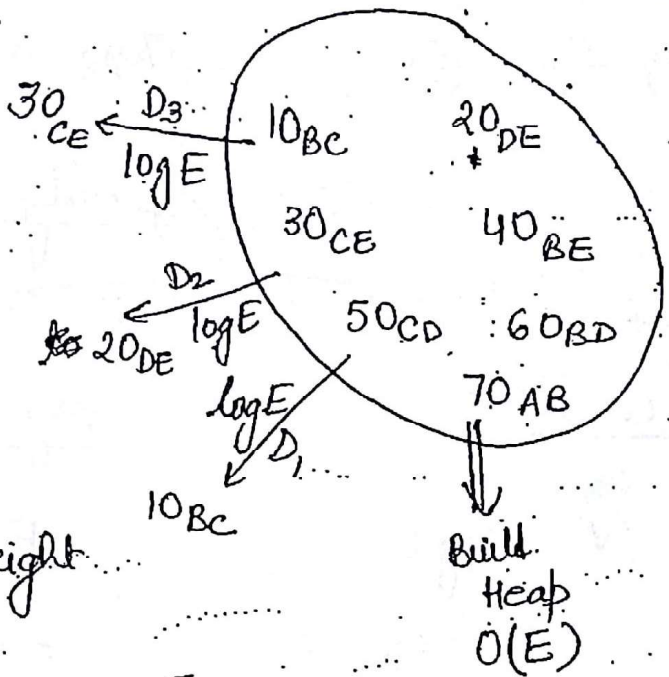 30CE
D3
log E
10BC
20DE
30CE
40BE
D2
log E
20DE
50CD
60BD
70AB
log E
D1
10BC
eight
Build
Heap
O(E)